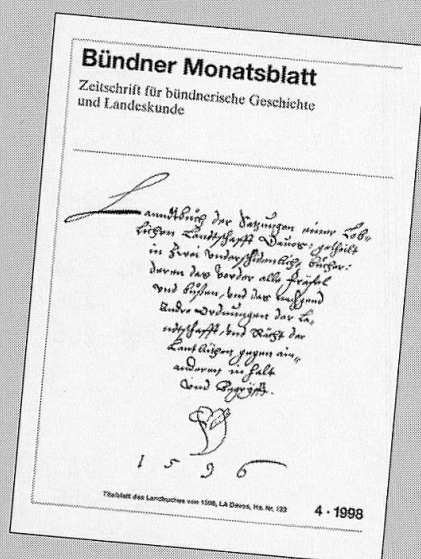 Bündner Monatsblatt
Zeitschrift für bündnerische Geschichte
und Landeskunde
Lanndtbuch der Satzungen einer Lob-
lichen Landtschafft Davos: getheilt
in Zwei underschidenliche bücher:
deren das vorder alle Fräfel
und büßen, und das nachgend
Andre Ordnungen der La-
ndtschafft, und Rächt der
Landtlüthen gegen ein-
anderen in halt
und begryfft.
1596
Titelblatt des Landbuches vom 1596, LA Davos, Hs. Nr. 122
4 · 1998